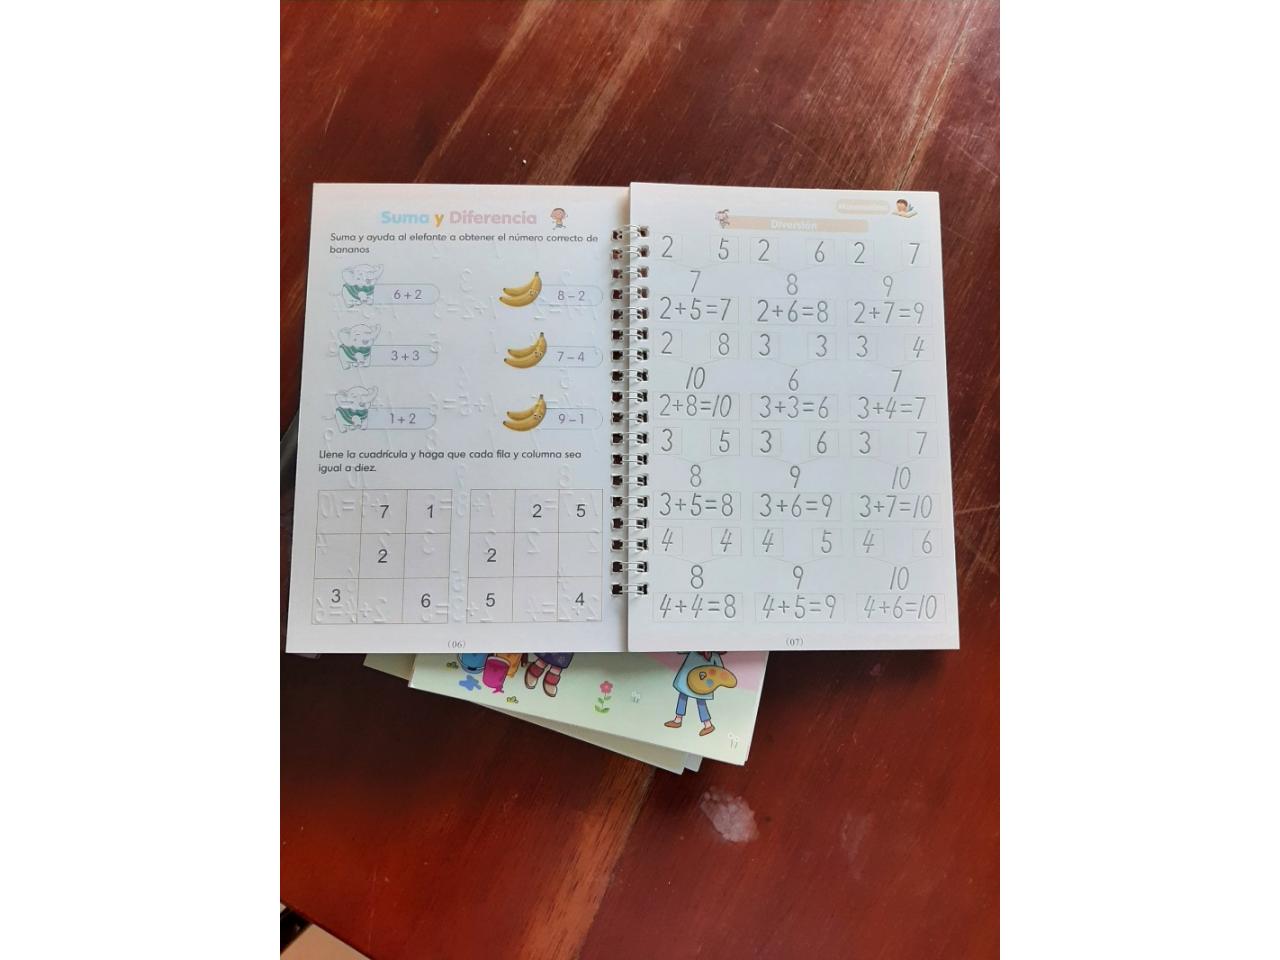 Suma y Diferencia
Suma y ayuda al elefante a obtener el número correcto de
bananos
6 + 2 8 – 2
3 + 3 7 – 4
1 + 2 9 – 1
Llene la cuadrícula y haga que cada fila y columna sea
igual a diez.
7 1 2 5
2 2
3 6 5 4
(06)
Matemáticas
Diversión
2 5 2 6 2 7
7 8 9
2+5=7 2+6=8 2+7=9
2 8 3 3 3 4
10 6 7
2+8=10 3+3=6 3+4=7
3 5 3 6 3 7
8 9 10
3+5=8 3+6=9 3+7=10
4 4 4 5 4 6
8 9 10
4+4=8 4+5=9 4+6=10
(07)